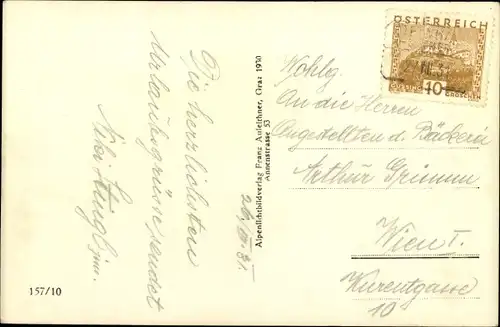 Die herzlichsten
Urlaubsgrüsse sendet
26./VII. 31.
157/10
Alpenlichtbildverlag Franz Auleithner, Graz 1930
Annenstrasse 53
ÖSTERREICH
10
GROSCHEN
Wohlg.
An die Herren
Angestellten d. Bäckerei
Arthur Grimm
Wien I.
Kurentgasse
10